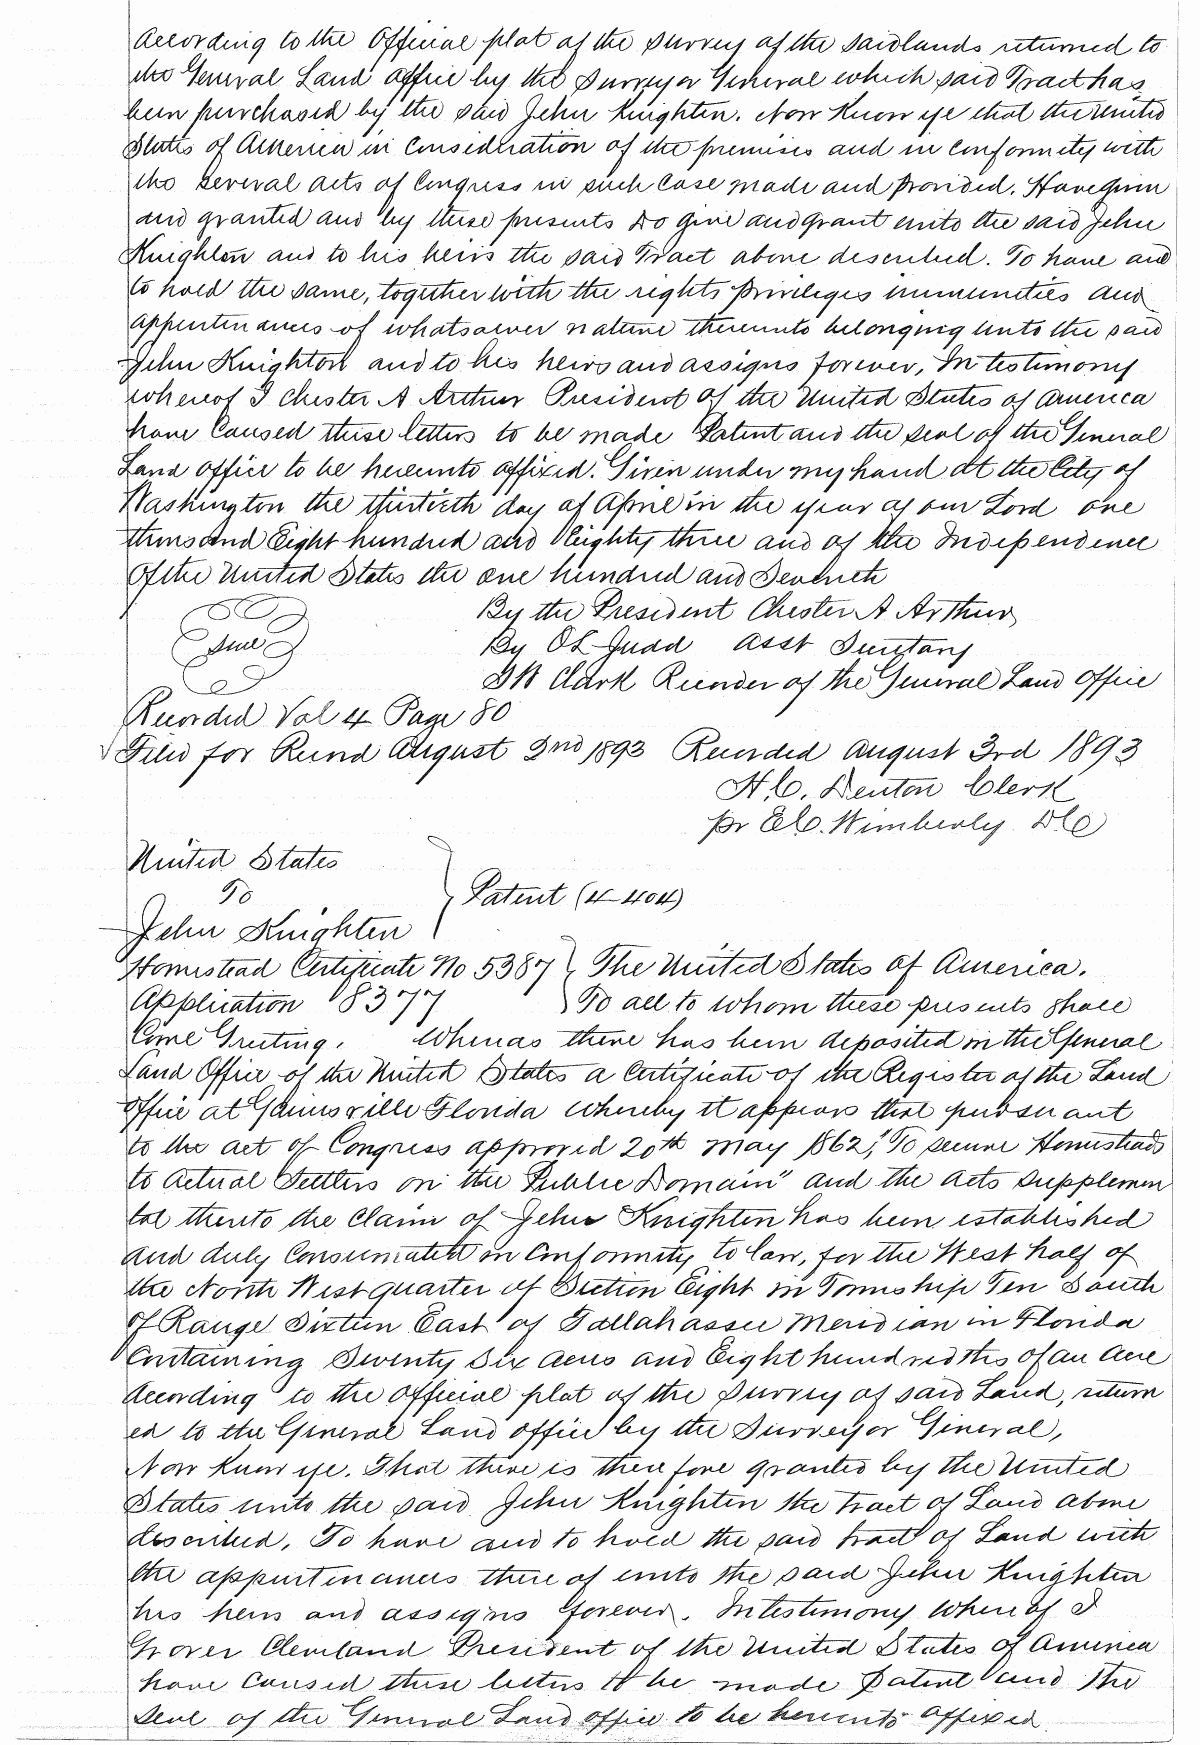 According to the Official plat of the Survey of the said lands returned to
the General Land office by the Surveyor General which said Tract has
been purchased by the said John Knighten. Now Know ye that the United
States of America in consideration of the premises and in conformity with
the several acts of Congress in such case made and provided. Have given
and granted and by these presents Do give and grant unto the said John
Knighton and to his heirs the said Tract above described. To have and
to hold the same, together with the rights privileges immunities and
appurtenances of whatsoever nature thereunto belonging unto the said
John Knighton and to his heirs and assigns forever, In testimony
whereof I Chester A Arthur President of the United States of America
have Caused these letters to be made Patent and the seal of the General
Land office to be hereunto affixed. Given under my hand at the City of
Washington the thirtieth day of April in the year of our Lord one
thousand Eight hundred and Eighty three and of the Independence
Of the United States the one hundred and Seventh
By the President Chester A Arthur
Seal By OL Judd Asst Secretary
Clark Recorder of the General Land Office
Recorded Vol 4 Page 80
Filed for Record August 2nd 1893 Recorded August 3rd 1893
H.C. Denton Clerk
pr E.C. Wimberly D.C
United States
To Patent (4-404)
John Knighten
Homestead Certificate No 5387 The United States of America.
Application 8377 To all to whom these presents shall
Come Greeting. Whereas there has been deposited in the General
Land Office of the United States a Certificate of the Register of the Land
Office at Gainsville Florida whereby it appears that pursuant
to the act of Congress approved 20th May 1862, "To secure Homesteads
to Actual Settlers on the Public Domain" and the Acts supplemen
tal thereto the Claim of John Knighten has been established
and duly Consumated in Conformity to law, for the West half of
the North West quarter of Section Eight in Township Ten South
of Range Sixteen East of Tallahassee Meridian in Florida
Containing Seventy Six acres and Eight hundredths of an Acre
According to the official plat of the Survey of said Land, return
ed to the General Land office by the Surveyor General,
Now Know ye. That there is therefore granted by the United
States unto the said John Knighten the tract of Land above
described. To have and to hold the said tract of Land with
the appurtenances there of unto the said John Knighten
his heirs and assigns forever. In testimony Whereof I
Grover Cleveland President of the United States of America
have caused these letters to be made Patent and the
Seal of the General Land office to be hereunto affixed